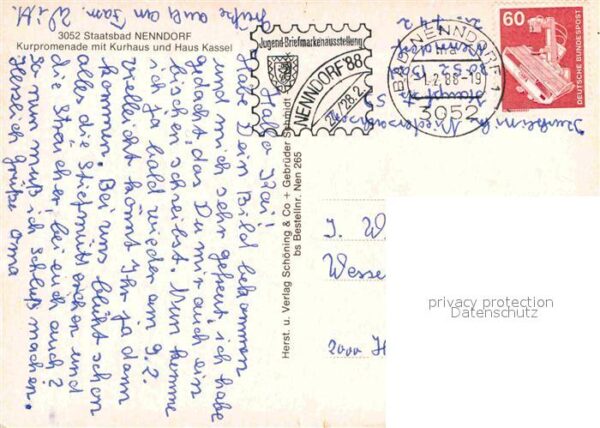 3052 Staatsbad NENNDORF
Kurpromenade mit Kurhaus und Haus Kassel
Hallo Kai!
Habe Dein Bild bekommen
und mich sehr gefreut, ich habe
gedacht, das Du mir auch ein
bischen schreibst. Nun komme
ich ja bald wieder am 9.2.
vielleicht kommt Ihr ja dann
kommen. Bei uns blüht schon
alles die Stiefmütterchen und
die Sträucher, bei euch auch?
So nun muß ich schluß machen.
Herzlich grüße Oma
Grüße auch an Fam.
Herst. u. Verlag Schöning & Co + Gebrüder Schmidt
bs Bestellnr. Nen 265
Jugend-Briefmarkenausstellung
NENNDORF '88
27./28.2.
BAD NENNDORF 1
-1.2.88-19
3052
60
DEUTSCHE BUNDESPOST
Niedersachsen
J. W
Wesse
2000 H
privacy protection
Datenschutz